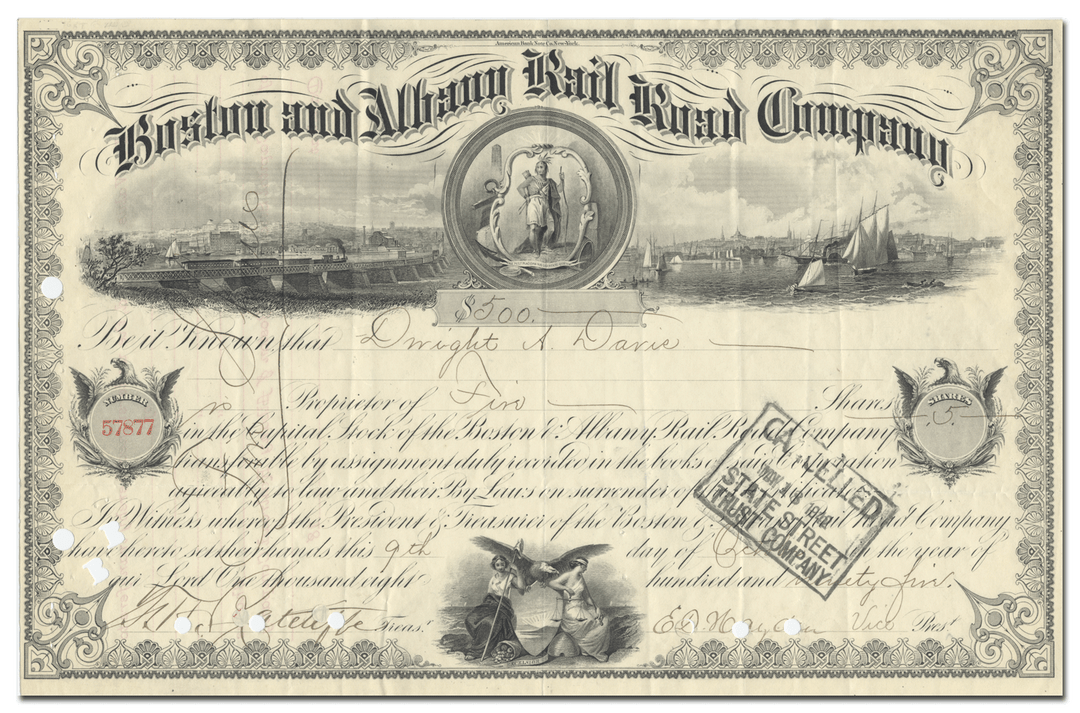 American Bank Note Co. New York.
Boston and Albany Rail Road Company
$500.
Be it Known, that Dwight A. Davis
is Proprietor of Five Shares
NUMBER
57877
SHARES
5
in the Capital Stock of the Boston & Albany Rail Road Company
transferable by assignment duly recorded in the books of said Corporation
agreeably to law and their By-Laws on surrender of
In Witness whereof the President & Treasurer of the Boston & Road Company
have hereto set their hands this 9th day of in the year of
our Lord One Thousand eight hundred and ninety five.
CANCELLED
STATE STREET
TRUST COMPANY
Treasr. Vice Prest